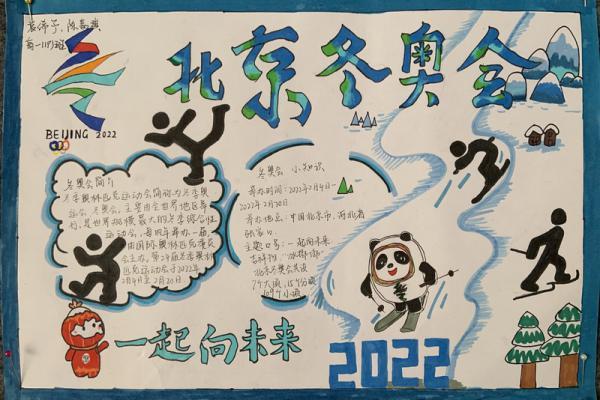 北京冬奥会
高一
BEIJING 2022
冬奥会简介
冬季奥林匹克运动会简称为冬季奥
运会、冬奥会。主要由全世界地区举
行,是世界规模最大的冬季综合性
运动会,每四年举办一届
由国际奥林匹克委员
会主办。第24届冬季奥林
匹克运动会于2022年
2月4日至2月20日
冬奥会 小知识
举办时间:2022年2月4日—
2022年2月20日
举办地点:中国北京市,河北省
张家口
主题口号:一起向未来
吉祥物:"冰墩墩"
北京冬奥会共设
7个大项,15个分项
109个小项
一起向未来
2022